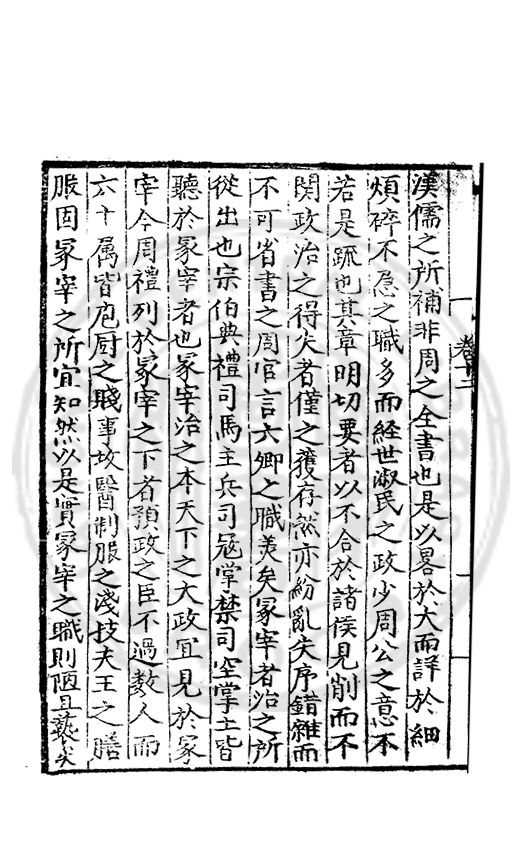 卷十二
漢儒之所補非周之全書也是以畧於大而詳於細
煩碎不急之職多而經世淑民之政少周公之意不
若是疏也其章明切要者以不合於諸侯見削而不
関政治之得失者僅之獲存然亦紛亂失序錯雜而
不可省書之周官言六卿之職美矣冢宰者治之所
從出也宗伯典禮司馬主兵司寇掌禁司空掌土皆
聽於冢宰者也冢宰治之本天下之大政宜見於冢
宰今周禮列於冢宰之下者預政之臣不過数人而
六十属皆庖厨之賤事攻醫制服之淺技夫王之膳
服固冢宰之所宜知然以是實冢宰之職則陋且褻矣